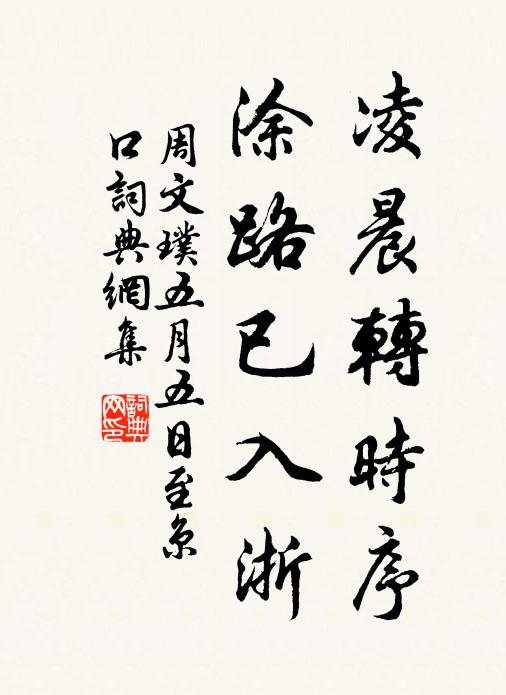 凌晨轉時序
涂路已入浙
周文璞五月五日至京
口詞典網集
詞典网印